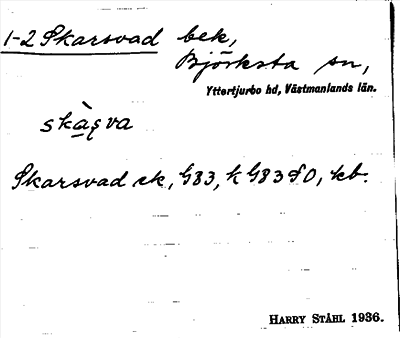 1-2 Skarsvad bek,
Björksta sn,
Yttertjurbo hd, Västmanlands län.
skàꞔva
Skarsvad ek, G83, k G83 SO, kb.
HARRY STÅHL 1936.